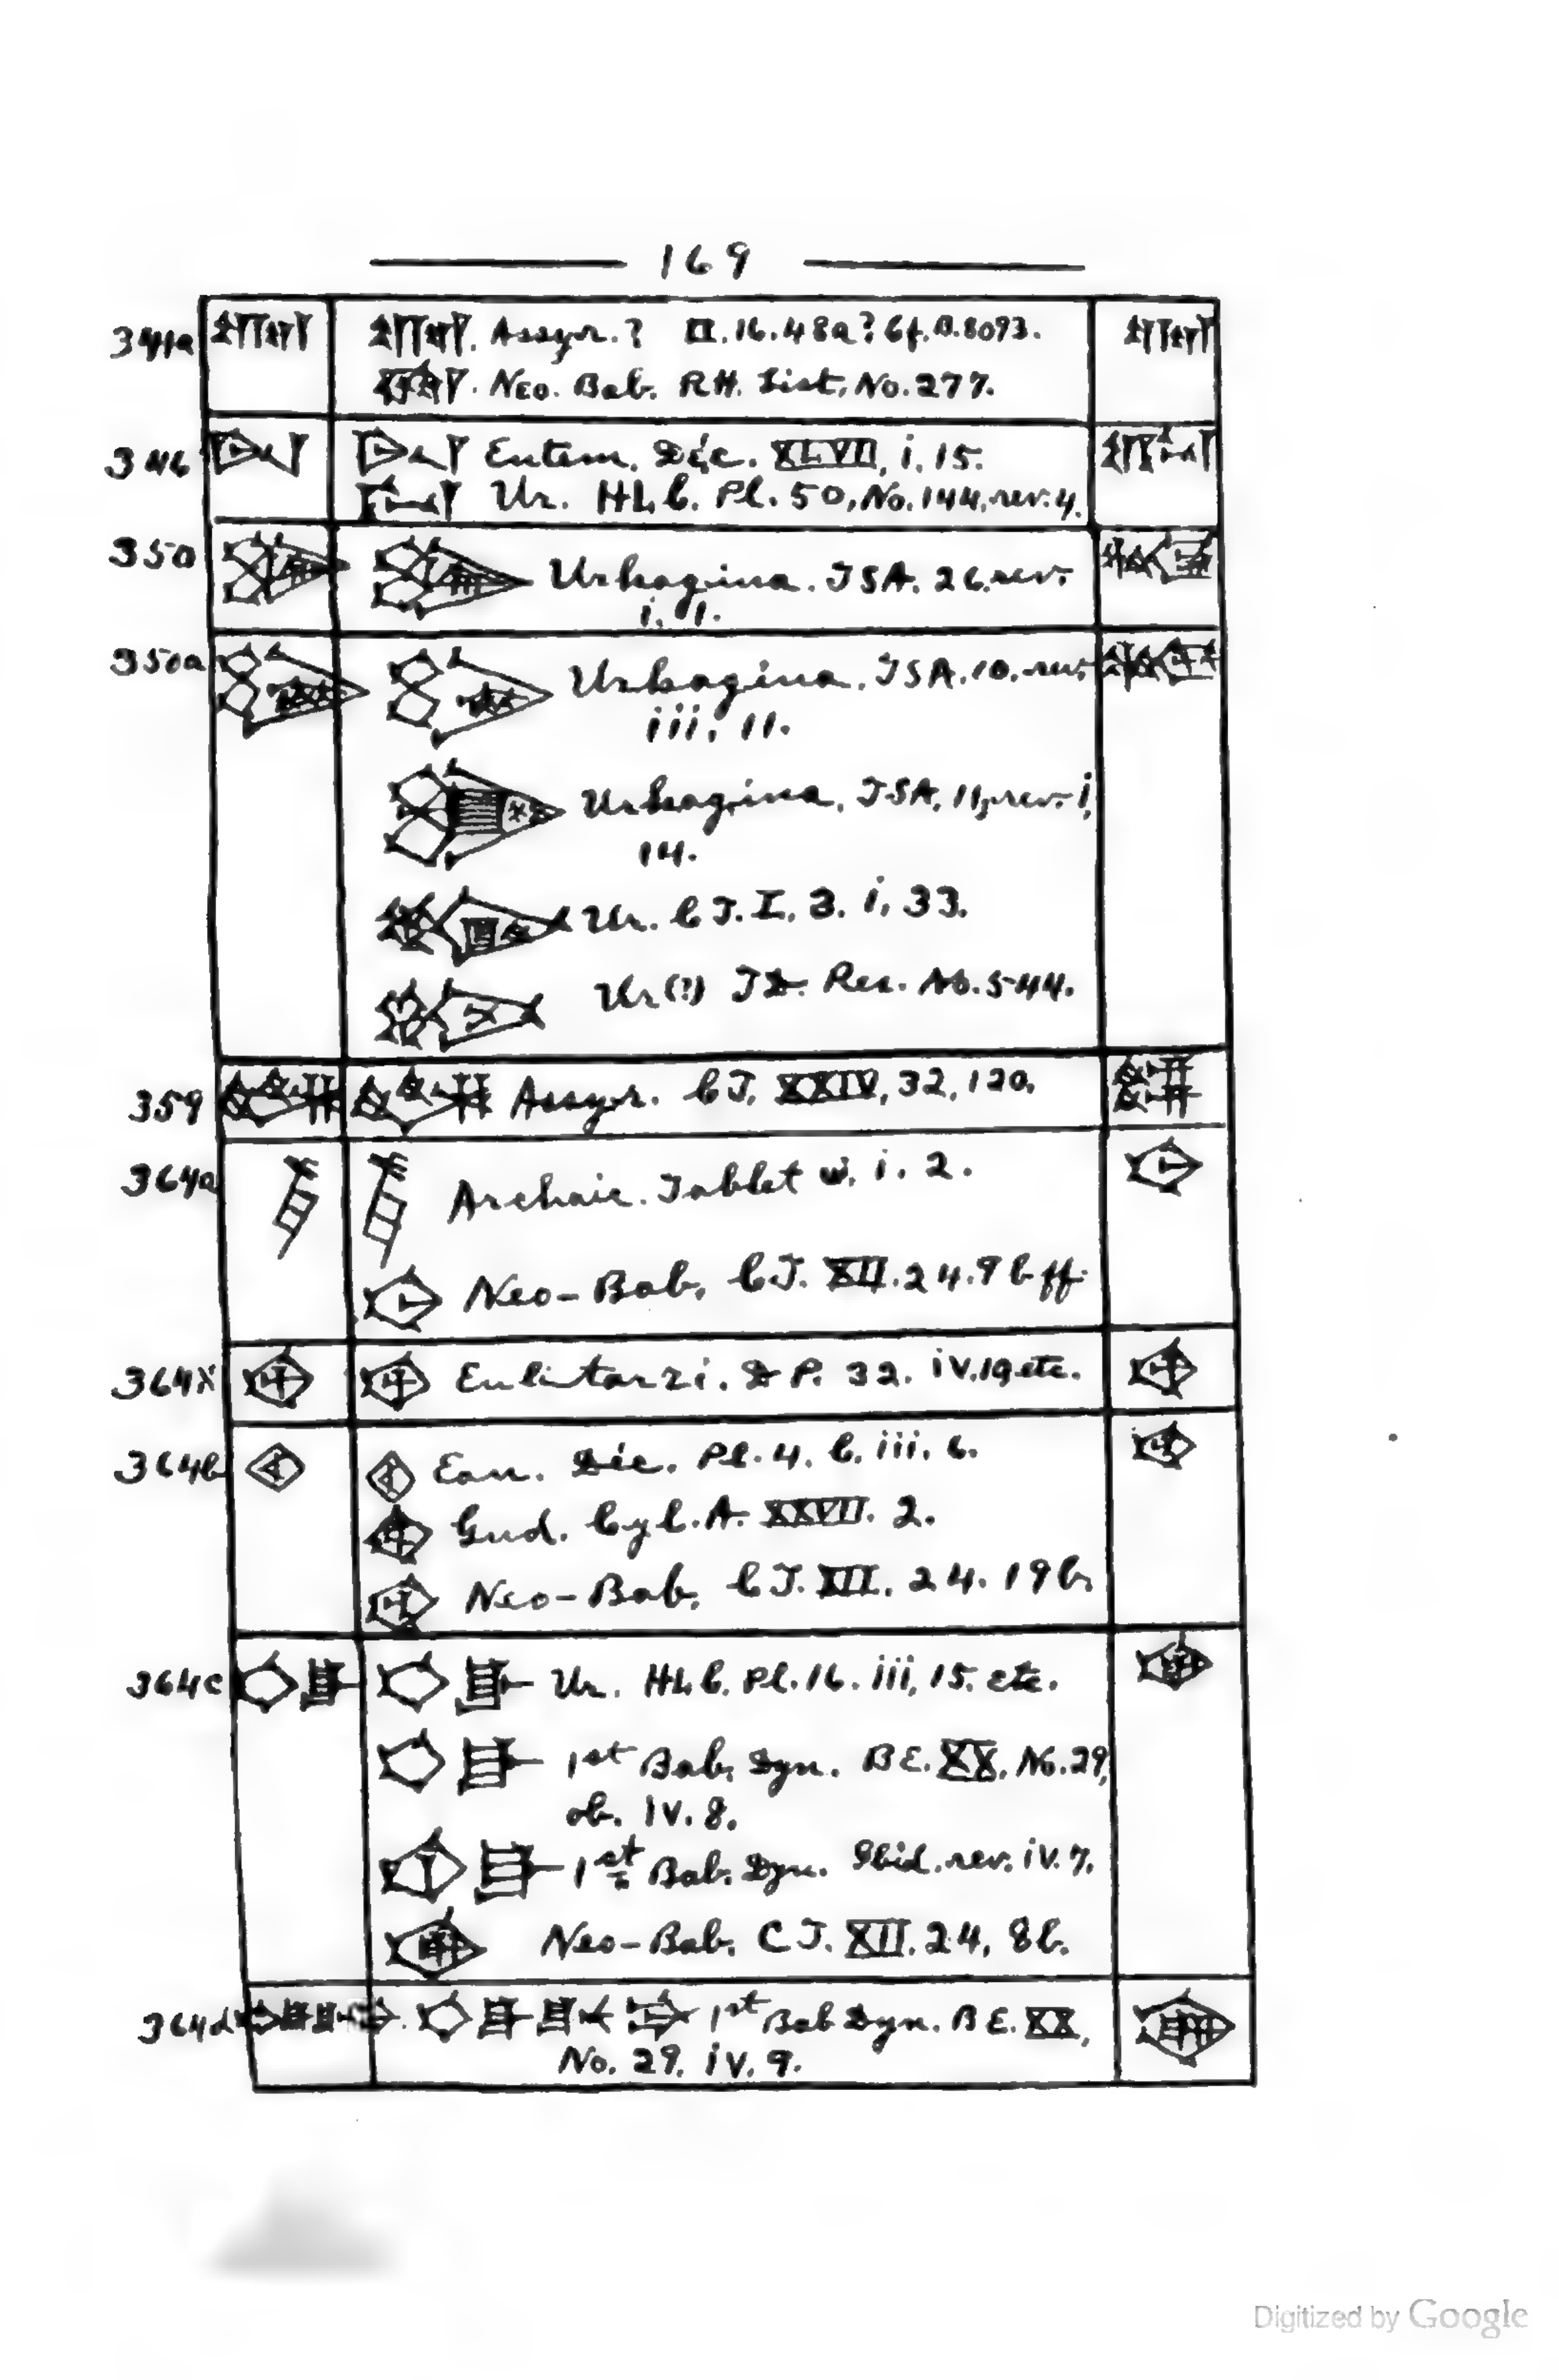 169
341a Assyr. ? II. 16. 48a? Cf. B. 8093.
Neo. Bab. RH. List, No. 277.
346 Entem. Déc. XLVII, i, 15.
Ur. HLC. Pl. 50, No. 144, rev. 4.
350 Urkagina. TSA. 26. rev.
i, 1.
350a Urkagina, TSA. 10. rev.
iii, 11.
Urkagina, TSA, 11, rev. i,
14.
Ur. CT. I, 3. i, 33.
Ur (?) TD. Rec. No. 544.
359 Assyr. CT. XXIV, 32, 120.
364a Archaic. Tablet i. 2.
Neo-Bab. CT. XII. 24. 9b ff.
364x Enlitarzi. DP. 32. iv, 19 etc.
364b Ean. Déc. Pl. 4. C. iii. 6.
Gud. Cyl. A. XXVII. 2.
Neo-Bab. CT. XII. 24. 19b.
364c Ur. HLC. Pl. 16. iii, 15. etc.
1st Bab. Dyn. BE. XX, No. 29,
ob. iv. 8.
1st Bab. Dyn. Ibid. rev. iv. 7.
Neo-Bab. CT. XII. 24, 8b.
364d 1st Bab Dyn. BE. XX,
No. 29. iv. 9.
Digitized by Google